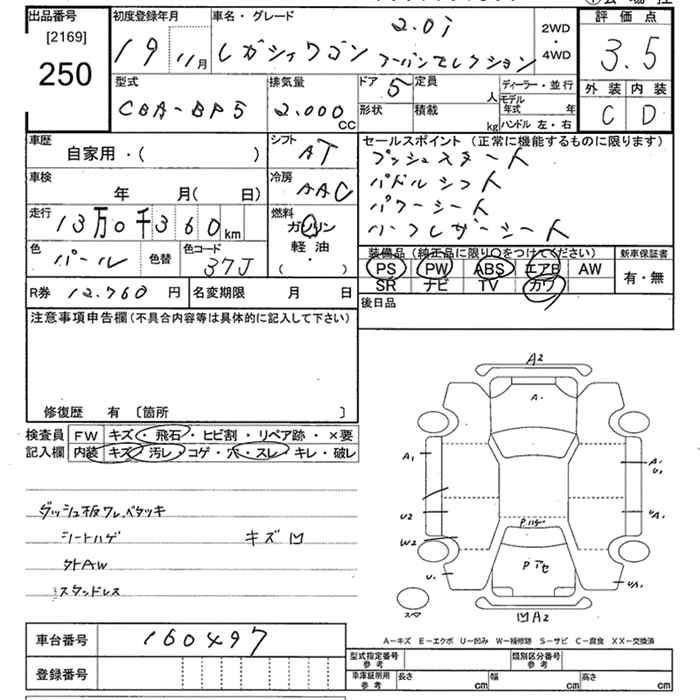 出品番号 [2169] 250
初度登録年月 19 11月
車名・グレード 2.0i
レガシィワゴン アーバンセレクション
2WD・4WD
評価点 3.5
外装 C 内装 D
型式 CBA-BP5
排気量 2.000 CC
ドア 5 定員 人
形状 積載 kg
ディーラー・並行
モデル年式 年
ハンドル 左・右
車歴 自家用・( )
シフト AT
車検 年 月( 日)
冷房 AAC
走行 13万0千360km
燃料 ガソリン 軽油・( ・ )
色 パール 色替 色コード 37J
セールスポイント (正常に機能するものに限ります)
プッシュスタート
パドルシフト
パワーシート
ハーフレザーシート
装備品 (純正品に限り○をつけてください)
PS PW ABS エアB AW
SR ナビ TV カワ
新車保証書 有・無
R券 12.760 円 名変期限 月 日
後日品
注意事項申告欄 (不具合内容等は具体的に記入して下さい)
修復歴 有 〔箇所 〕
検査員 FW キズ・飛石・ヒビ割・リペア跡・×要
記入欄 内装 キズ・汚レ・コゲ・穴・スレ・キレ・破レ
ダッシュ板ワレ、ベタツキ
シートハゲ キズ凹
外AW
スタッドレス
A2
A.
A1
A1
U1
U2
UA1
W2
Pハゲ
Pイセ
U1
UA1
スペ
凹A2
A-キズ E-エクボ U-凹み W-補修跡 S-サビ C-腐食 XX-交換済
車台番号 160497
登録番号
型式指定番号 参考 類別区分番号 参考
車庫証明用 参考 長さ cm 幅 cm 高さ cm